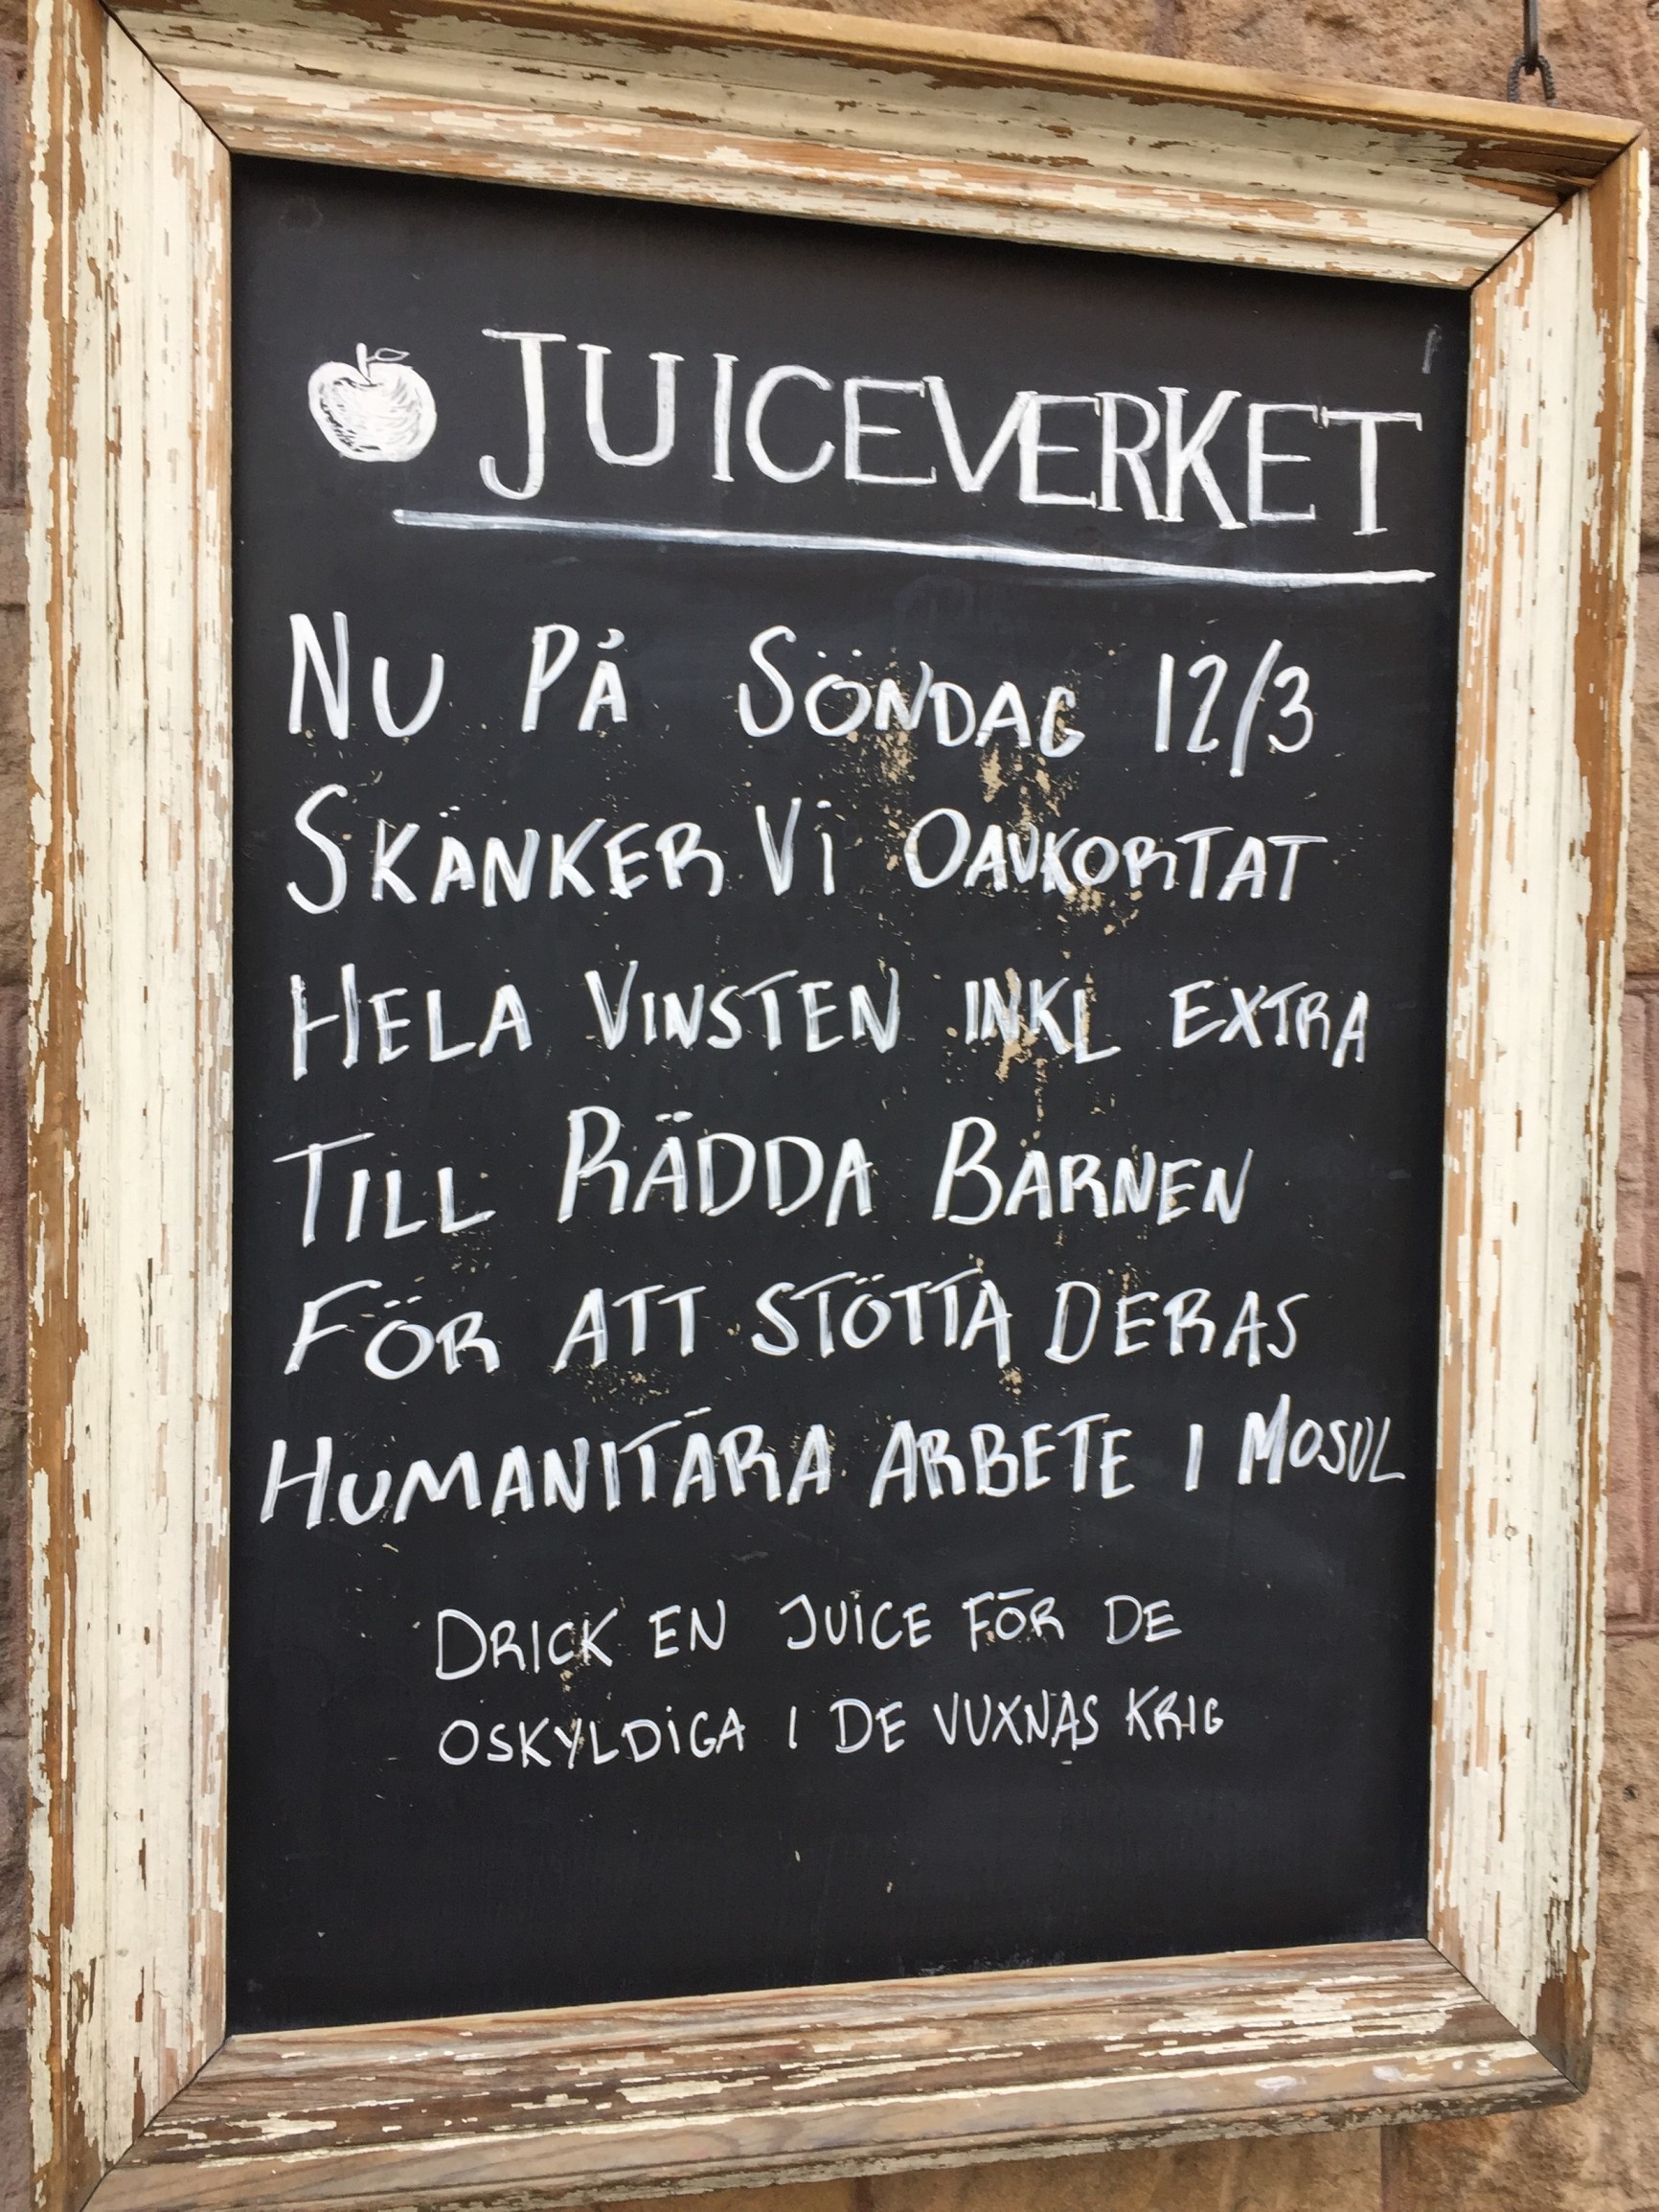 JUICEVERKET
NU PÅ SÖNDAG 12/3
SKÄNKER Vi OAVKORTAT
HELA VINSTEN INKL EXTRA
TILL RÄDDA BARNEN
FÖR ATT STÖTTA DERAS
HUMANITÄRA ARBETE I MOSUL
DRICK EN JUiCE FÖR DE
OSKYLDiGA I DE VUXNAS KRIG